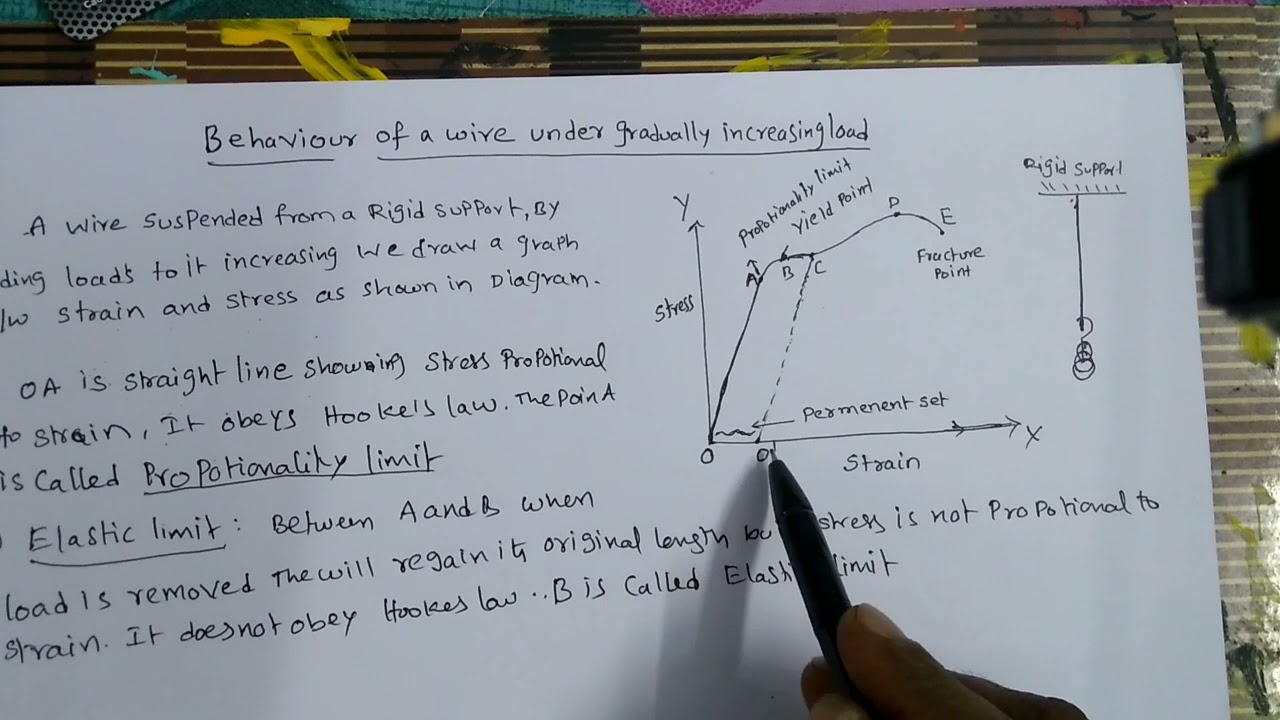 Behaviour of a wire under gradually increasing load
A wire suspended from a Rigid support, By
ding loads to it increasing we draw a graph
/w strain and stress as shown in Diagram.
OA is straight line showing stress Propotional
to strain, It obeys Hooke's law. The Poin A
is Called Propotionality limit
Elastic limit: Between A and B when
load is removed The will regain its original length bu stress is not Propotional to
strain. It does not obey Hookes law ∴ B is Called Elasti limit
Y
Propotionality limit
Yield Point
Stress
A
B
C
D
E
Fracture
Point
Permenent set
O
O'
X
Strain
Rigid Support